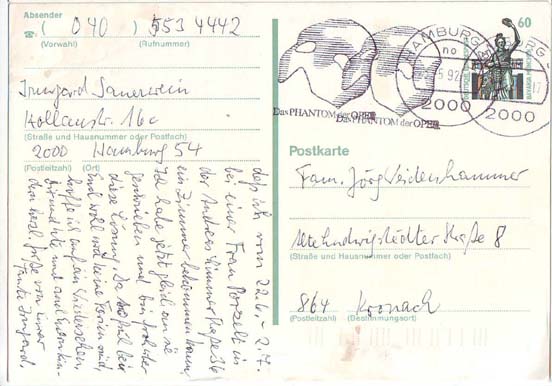 Absender
☎ ( 040 ) 5534442
(Vorwahl) (Rufnummer)
Irmgard Sauerwein
Kollaustr. 16c
(Straße und Hausnummer oder Postfach)
2000 Hamburg 54
(Postleitzahl) (Ort)
daß ich vom 22.6.-2.7.
bei einer Frau Porzelt in
der Andreas Limmer Straße 36
ein Zimmer bekommen kann.
Ich habe jetzt gleich an sie
geschrieben und bin froh über
diese Lösung. Da
und weil keine Ferien sind,
hoffe ich auf ein Wiedersehen.
Herzl. Grüße von Eurer
Tante Irmgard.
HAMBURG
no
5.92
2000
2000
Das PHANTOM der OPER
Das PHANTOM der OPER
60
BAVARIA MÜNCHEN
Postkarte
Fam. Jörg Weidenhammer
Alte Ludwigstädter Straße 8
(Straße und Hausnummer oder Postfach)
864 Kronach
(Postleitzahl) (Bestimmungsort)